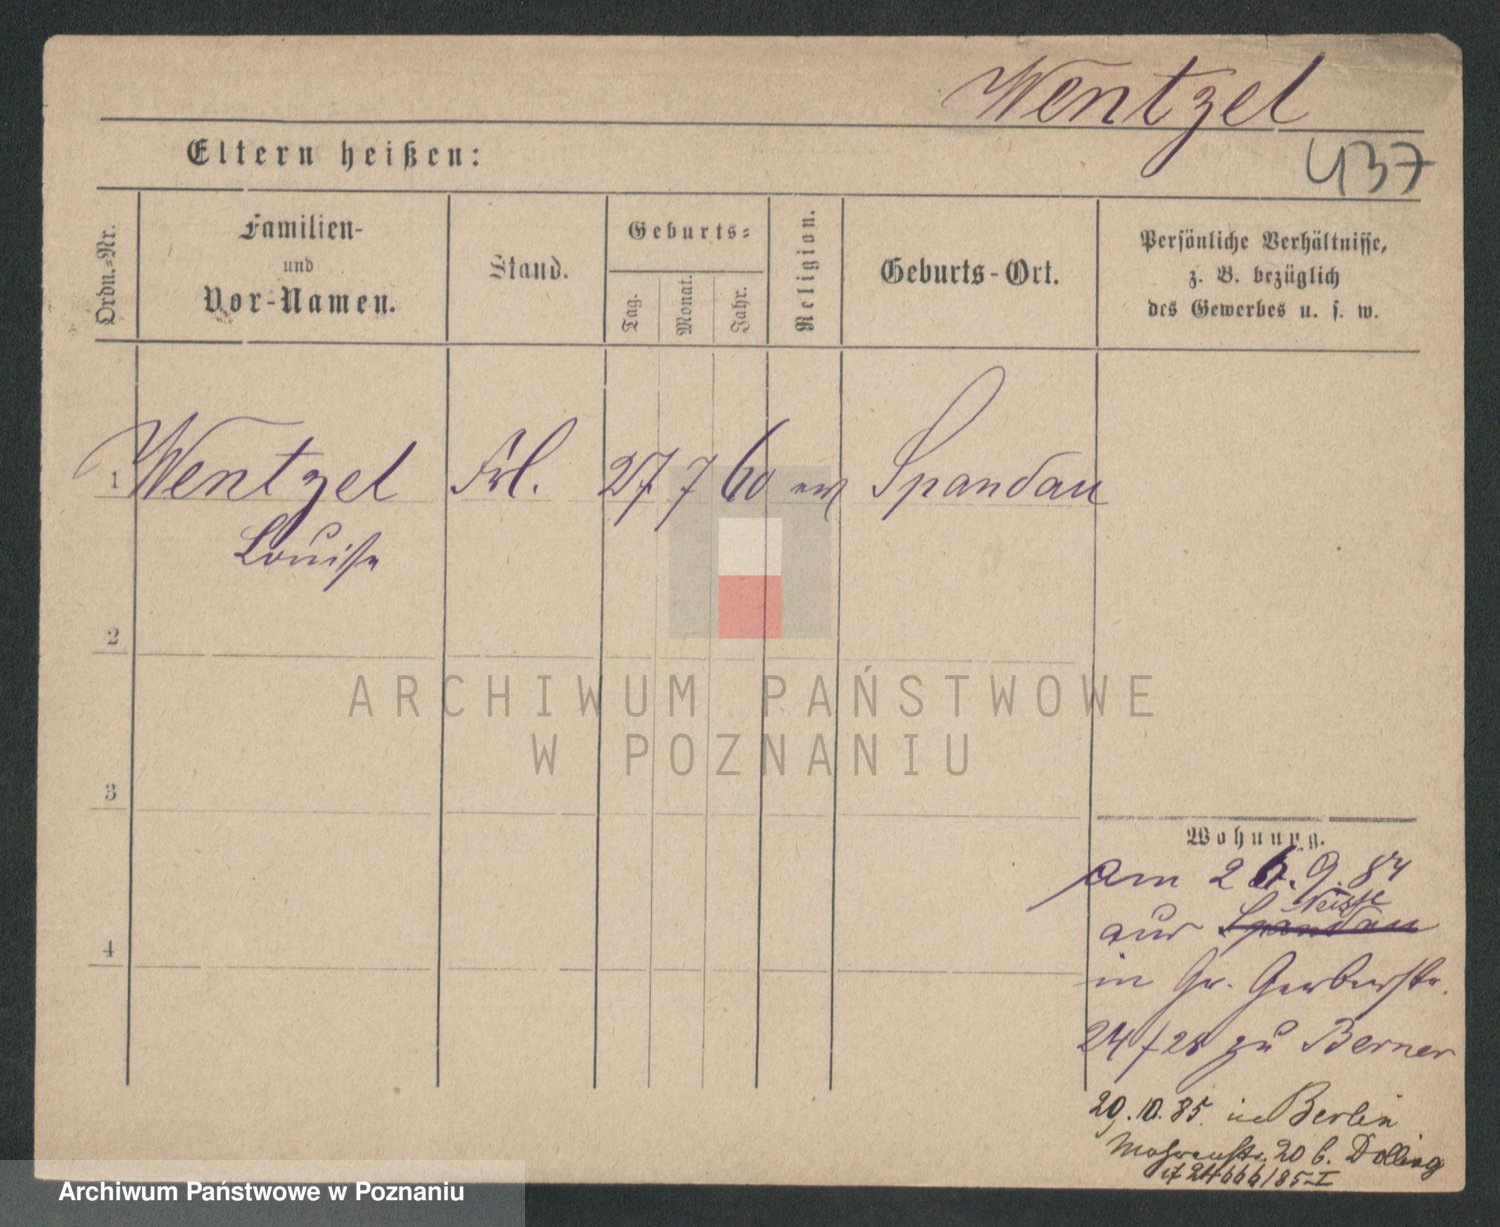 Wentzel
Eltern heißen:
437
Ordn.=Nr.
Familien-
und
Vor-Namen.
Stand.
Geburts=
Tag.
Monat.
Jahr.
Religion.
Geburts-Ort.
Persönliche Verhältnisse,
z. B. bezüglich
des Gewerbes u. s. w.
1 Wentzel Frl. 27 7 60 ev Spandau
Louise
2
ARCHIWUM PAŃSTWOWE
W POZNANIU
3
Wohnung.
am 26.9.84
Neisse
aus Spandau
in Gr. Gerberstr.
24/28 zu Berner
4
29.10.85. in Berlin
Mohrenstr. 20 b. Dolling
24666/85 I
Archiwum Państwowe w Poznaniu